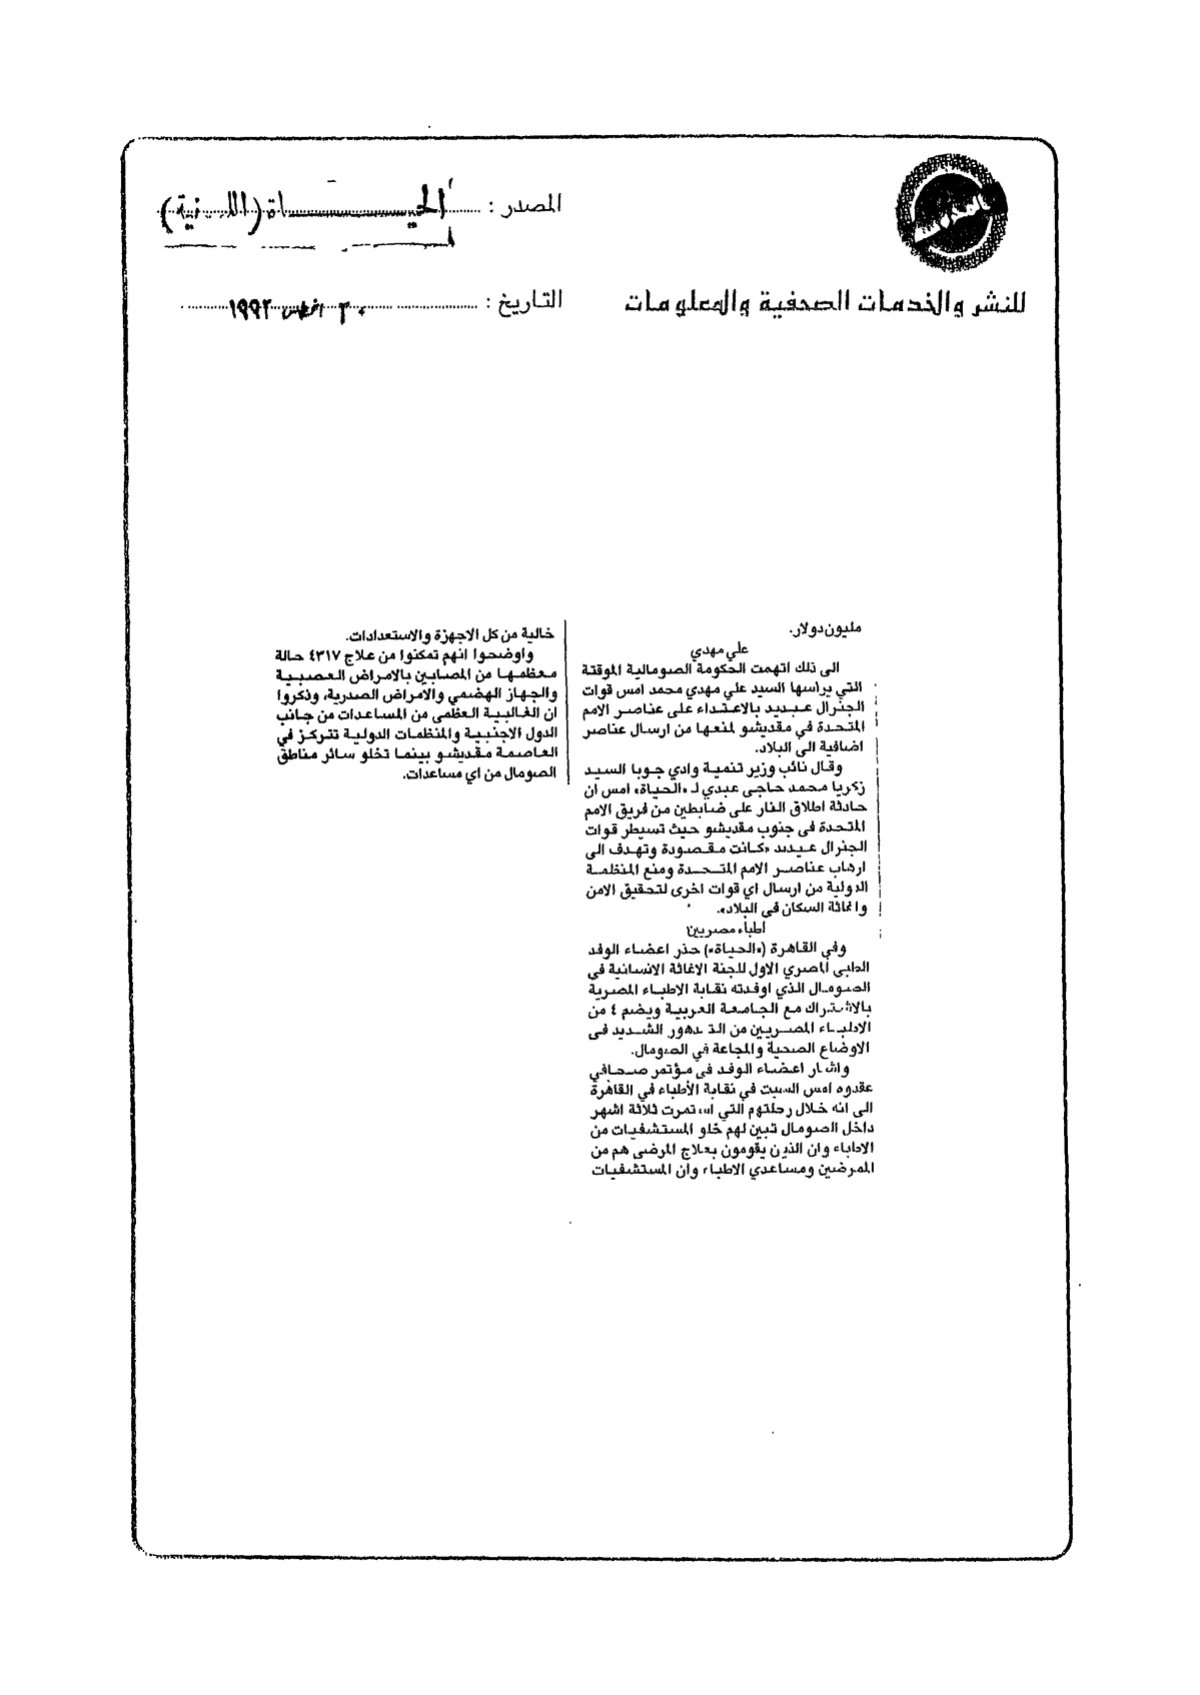 المصدر : الحيـــــاة (اللندنية)
للنشر والخدمات الصحفية والمعلومات
التاريخ : ٣٠ اغسطس ١٩٩٢
مليون دولار.
علي مهدي
الى ذلك اتهمت الحكومة الصومالية المؤقتة
التي يرأسها السيد علي مهدي محمد امس قوات
الجنرال عيديد بالاعتداء على عناصر الامم
المتحدة في مقديشو لمنعها من ارسال عناصر
اضافية الى البلاد.
وقال نائب وزير تنمية وادي جوبا السيد
زكريا محمد حاجي عبدي لـ «الحياة» امس ان
حادثة اطلاق النار على ضابطين من فريق الامم
المتحدة في جنوب مقديشو حيث تسيطر قوات
الجنرال عيديد «كانت مقصودة وتهدف الى
ارهاب عناصر الامم المتحدة ومنع المنظمة
الدولية من ارسال اي قوات اخرى لتحقيق الامن
واغاثة السكان في البلاد».
اطباء مصريين
وفي القاهرة («الحياة») حذر اعضاء الوفد
الطبي المصري الاول للجنة الاغاثة الانسانية في
الصومال الذي اوفدته نقابة الاطباء المصرية
بالاشتراك مع الجامعة العربية ويضم ٤ من
الاطباء المصريين من التدهور الشديد في
الاوضاع الصحية والمجاعة في الصومال.
واشار اعضاء الوفد في مؤتمر صحافي
عقدوه امس السبت في نقابة الأطباء في القاهرة
الى انه خلال رحلتهم التي استمرت ثلاثة اشهر
داخل الصومال تبين لهم خلو المستشفيات من
الاطباء وان الذين يقومون بعلاج المرضى هم من
الممرضين ومساعدي الاطباء وان المستشفيات
خالية من كل الاجهزة والاستعدادات.
واوضحوا انهم تمكنوا من علاج ٤٣١٧ حالة
معظمها من المصابين بالامراض العصبية
والجهاز الهضمي والامراض الصدرية، وذكروا
ان الغالبية العظمى من المساعدات من جانب
الدول الاجنبية والمنظمات الدولية تتركز في
العاصمة مقديشو بينما تخلو سائر مناطق
الصومال من اي مساعدات.